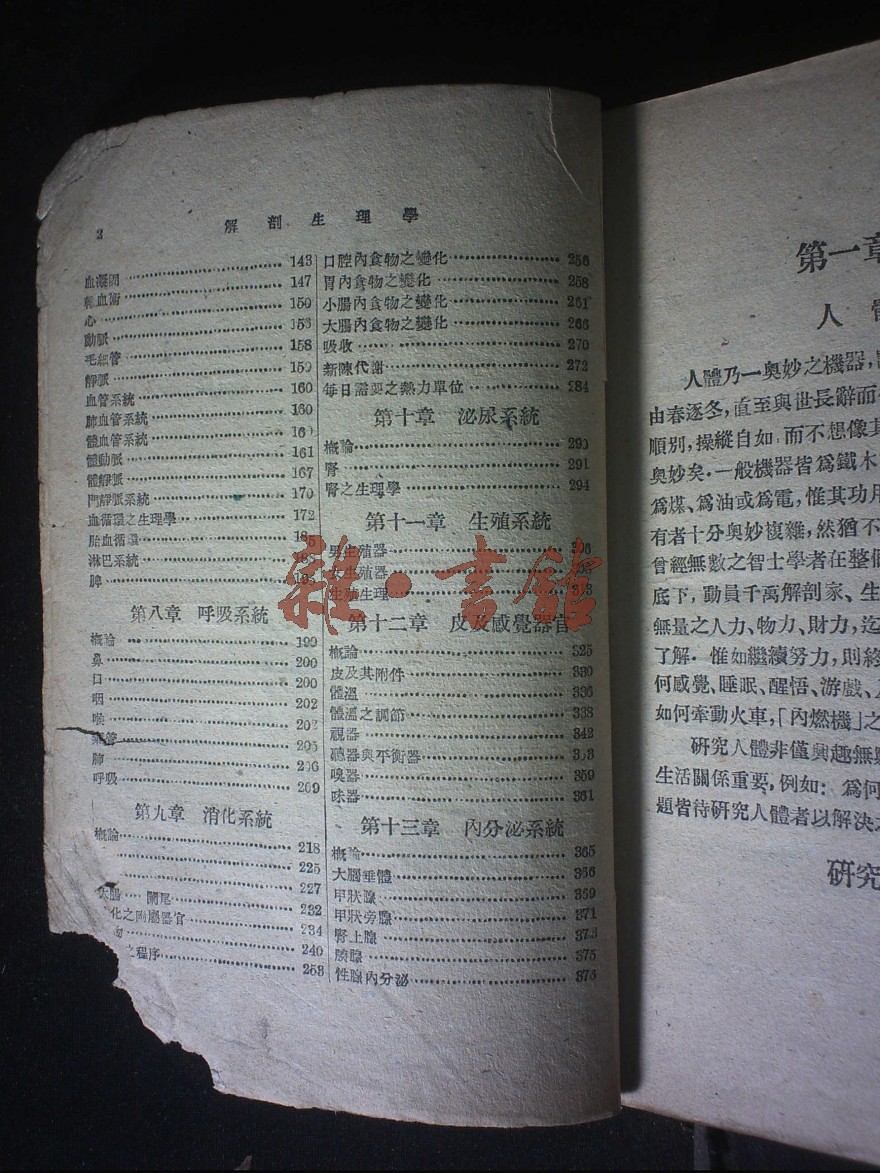 2 解剖生理學
血凝固 143
輸血術 147
心 150
動脈 153
毛細管 158
靜脈 159
血管系統 160
肺血管系統 160
體血管系統 160
體動脈 161
體靜脈 167
門靜脈系統 170
血循環之生理學 172
胎血循環
淋巴系統
脾
第八章 呼吸系統
概論 199
鼻 200
口 200
咽 202
喉 202
氣管 205
肺 206
呼吸 209
第九章 消化系統
概論 218
225
227
大腸 闌尾 232
化之附屬器官 234
240
之程序 253
口腔內食物之變化 256
胃內食物之變化 258
小腸內食物之變化 261
大腸內食物之變化 266
吸收 270
新陳代謝 272
每日需要之熱力單位 284
第十章 泌尿系統
概論 290
腎 291
腎之生理學 294
第十一章 生殖系統
男生殖器
女生殖器
生殖生理 313
第十二章 皮及感覺器官
概論 325
皮及其附件 330
體溫 336
體溫之調節 338
視器 342
聽器與平衡器 353
嗅器 359
味器 361
第十三章 內分泌系統
概論 365
大腦垂體 366
甲狀腺 369
甲狀旁腺 371
腎上腺 373
胰腺 375
性腺內分泌 376
雜·書館
第一章
人
人體乃一奧妙之機器,
由春逐冬,直至與世長辭而
順別,操縱自如,而不想像其
奧妙矣.一般機器皆爲鐵木
爲煤、爲油或爲電,惟其功用
有者十分奧妙複雜,然猶不
曾經無數之智士學者在整個
底下,動員千萬解剖家、生
無量之人力、物力、財力,迄
了解.惟如繼續努力,則終
何感覺、睡眠、醒悟、游戲、
如何牽動火車,「內燃機」之
研究人體非僅興趣無
生活關係重要,例如:爲何
題皆待研究人體者以解決之
研究